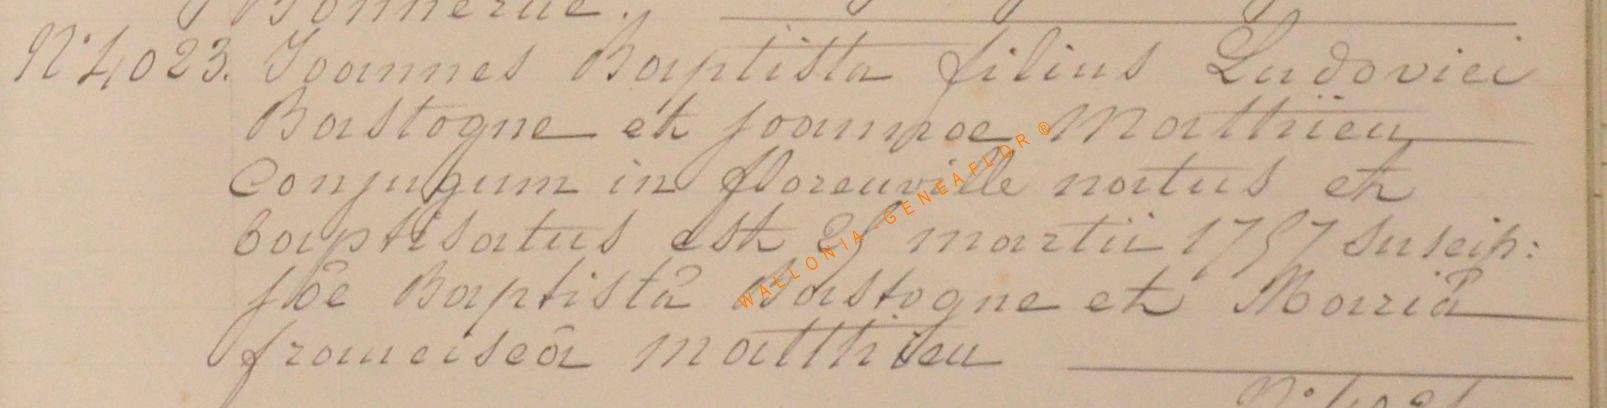 Tonnerue.
N° 4023. Joannes Baptista filius Ludovici
Bastogne et Joannae Matthieu
Conjugum in florenville natus et
baptisatus est 25 martii 1757 suscip:
Jôe Baptistâ Bastogne et Mariâ
franciscâ Matthieu
WALLONIA-GENEAFLOR®